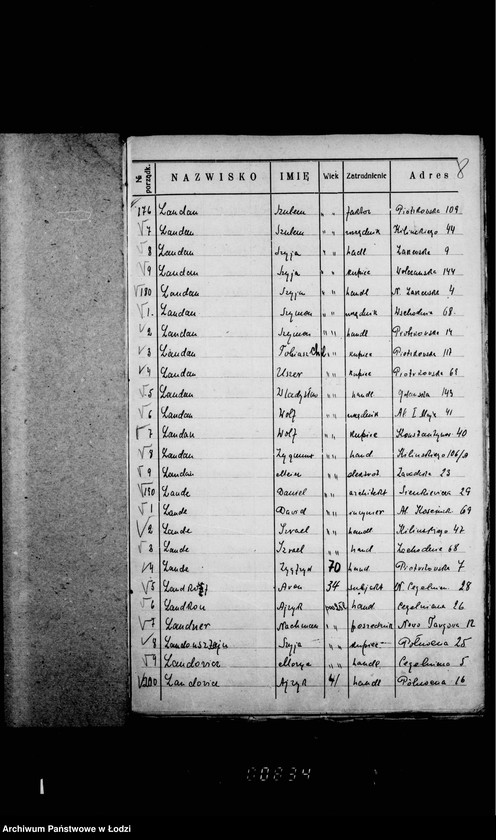 8
№ porządk. NAZWISKO IMIĘ Wiek Zatrudnienie Adres
176 Landau Szulem " " faktor Piotrkowska 109
7 Landau Szulem " " urzędnik Kilińskiego 44
8 Landau Szyja " " handl 9
9 Landau Szyja " " kupiec Wólczańska 144
180 Landau Szyja " " handl N. Zarzewska 4
1. Landau Szymon " " urzędnik Wschodnia 68
2 Landau Szymon " " handl Piotrkowska 14
3 Landau Tobiasz " " kupiec Piotrkowska 117
4 Landau Uszer " " kupiec Piotrkowska 61
5 Landau Władysław " handl Gdańska 143
6 Landau Wolf " " urzędnik Al. I Maja 41
7 Landau Wolf " " kupiec Konstantynow 40
8 Landau Zygmunt " " hand Kilińskiego
9 Landau " " Zawadzka 23
190 Lande Daniel " " architekt Sienkiewicza 29
1 Lande Dawid " " inżynier Al. Kościuszk 69
2 Lande Izrael " " handl Kilińskiego 47
3 Lande Izrael " " hand Zachodnia 68
4 Lande 70 hand Piotrkowska 7
5 Aron 34 subjekt N. Cegielnian 28
6 Landkon Ajzyk hand Cegielniana 26
7 Landner Nachman " " pośrednik Nowo Targowa 12
8 Szyja " " kupiec Północna 25
9 Landowicz " " handl Cegielniana 5
200 Landowicz Ajzyk 41 handl Północna 16
00834
Archiwum Państwowe w Łodzi